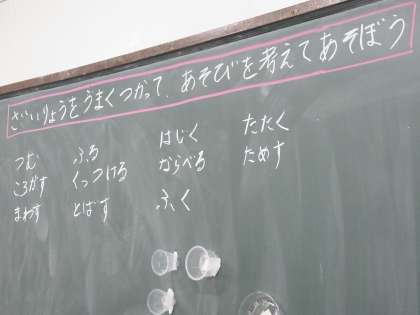 ざいりょうをうまくつかって、あそびを考えてあそぼう
つむ ふる はじく たたく
ころがす くっつける ならべる ためす
まわす とばす ふく